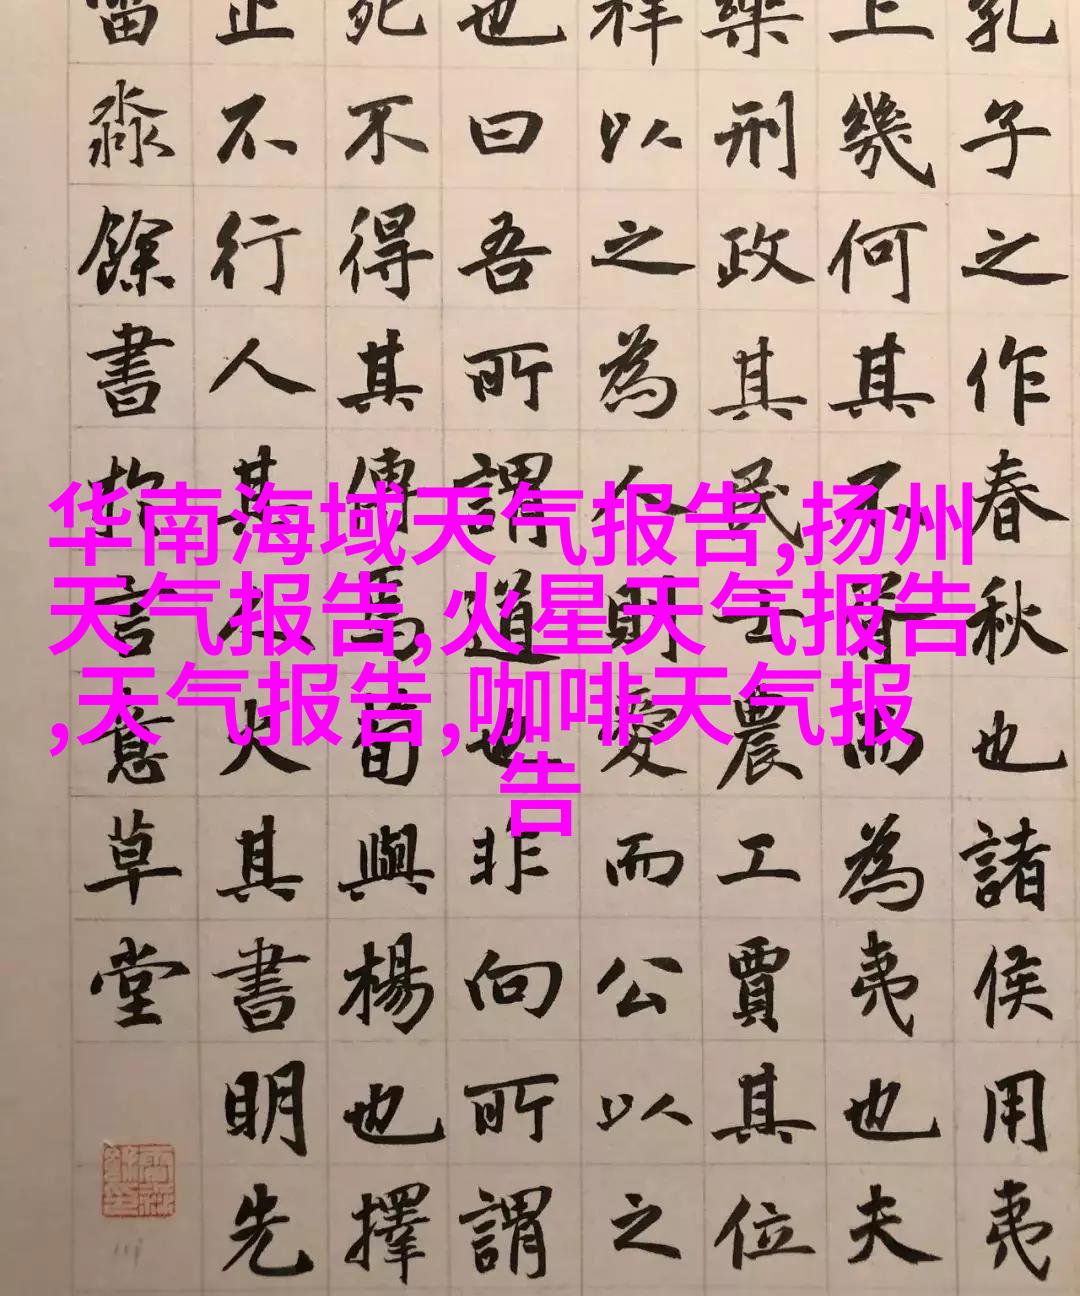 孔子之作春秋也諸侯用夷
上幾何其不胥而為夷也夫
樂刑政其民士農工賈其位
祥以之為人則愛而公以之
也曰吾所謂道也非向所謂
死不得其傳焉荀與楊也擇
止不行人其人火其書明先
淼餘書於言意草堂
华南海域天气报告,扬州
天气报告,火星天气报告
,天气报告,咖啡天气报
告